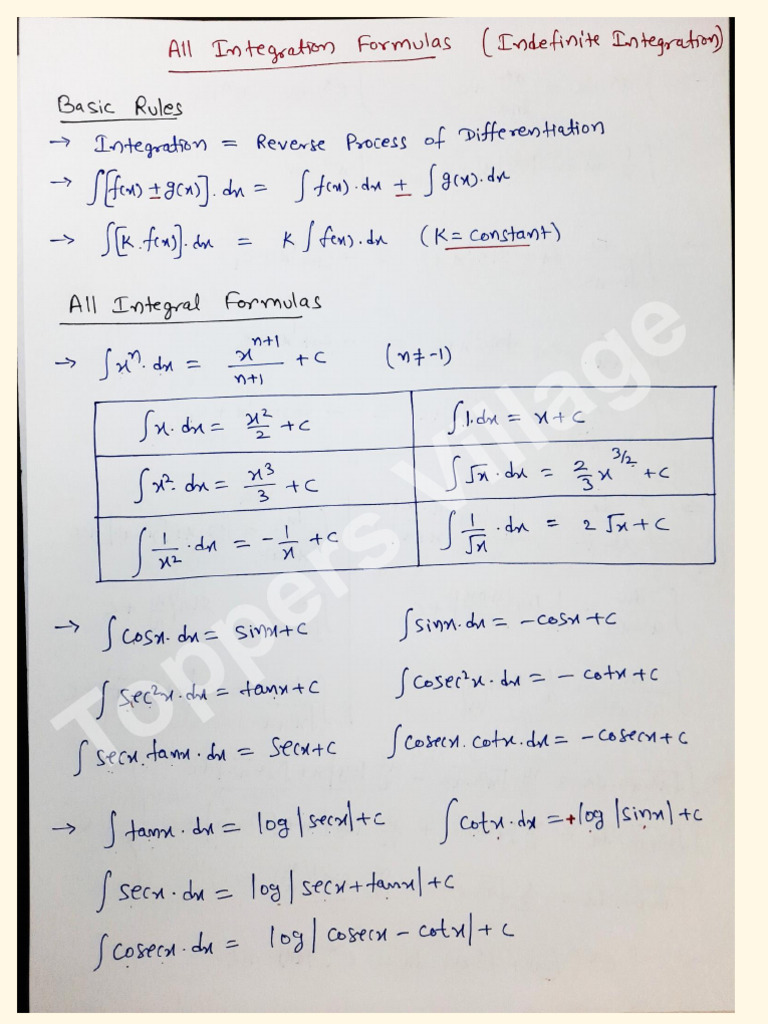 All Integration Formulas (Indefinite Integration)
Basic Rules
→ Integration = Reverse Process of Differentiation
→ ∫[f(x) ± g(x)].dx = ∫f(x).dx ± ∫g(x).dx
→ ∫[K.f(x)].dx = K∫f(x).dx (K = constant)
All Integral Formulas
→ ∫xⁿ.dx = xⁿ⁺¹/n+1 + C (n ≠ -1)
∫x.dx = x²/2 + C ∫1.dx = x + C
∫x².dx = x³/3 + C ∫√x.dx = 2/3 x^3/2 + C
∫1/x².dx = -1/x + C ∫1/√x.dx = 2√x + C
→ ∫cosx.dx = sinx + C ∫sinx.dx = -cosx + C
∫sec²x.dx = tanx + C ∫cosec²x.dx = -cotx + C
∫secx.tanx.dx = secx + C ∫cosecx.cotx.dx = -cosecx + C
→ ∫tanx.dx = log|secx| + C ∫cotx.dx = +log|sinx| + C
∫secx.dx = log|secx + tanx| + C
∫cosecx.dx = log|cosecx - cotx| + C
Toppers Village